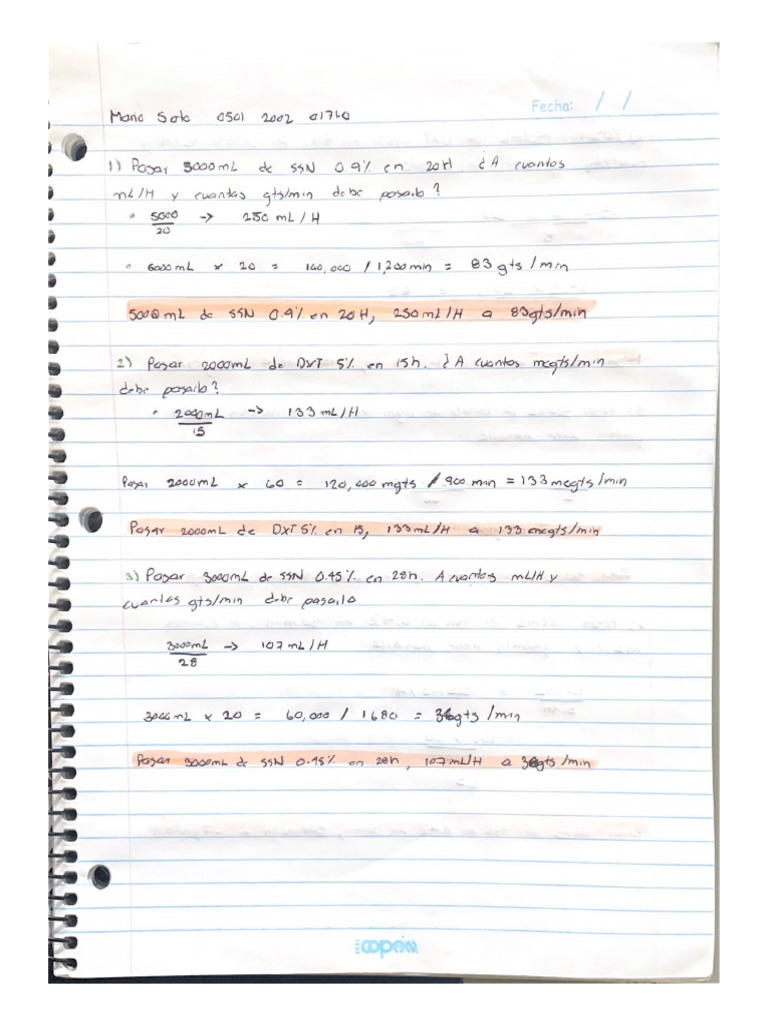 Fecha: / /
Mario Soto 0501 2002 01760
1) Pasar 5000mL de SSN 0.9% en 20H ¿A cuantos
mL/H y cuantas gts/min debe pasarlo?
• 5000 → 250 mL/H
20
• 5000mL x 20 = 100,000 / 1,200min = 83 gts/min
5000mL de SSN 0.9% en 20H, 250mL/H a 83gts/min
2) Pasar 2000mL de DXT 5% en 15h. ¿A cuantos mcgts/min
debe pasarlo?
• 2000mL → 133 mL/H
15
Pasar 2000mL x 60 = 120,000 mgts / 900 min = 133 mcgts/min
Pasar 2000mL de DXT 5% en 15, 133mL/H a 133 mcgts/min
3) Pasar 3000mL de SSN 0.45% en 28h. A cuantos mL/H y
cuantas gts/min debe pasarlo
3000mL → 107 mL/H
28
3000mL x 20 = 60,000 / 1680 = gts/min
Pasar 3000mL de SSN 0.45% en 28h, 107mL/H a gts/min
copán